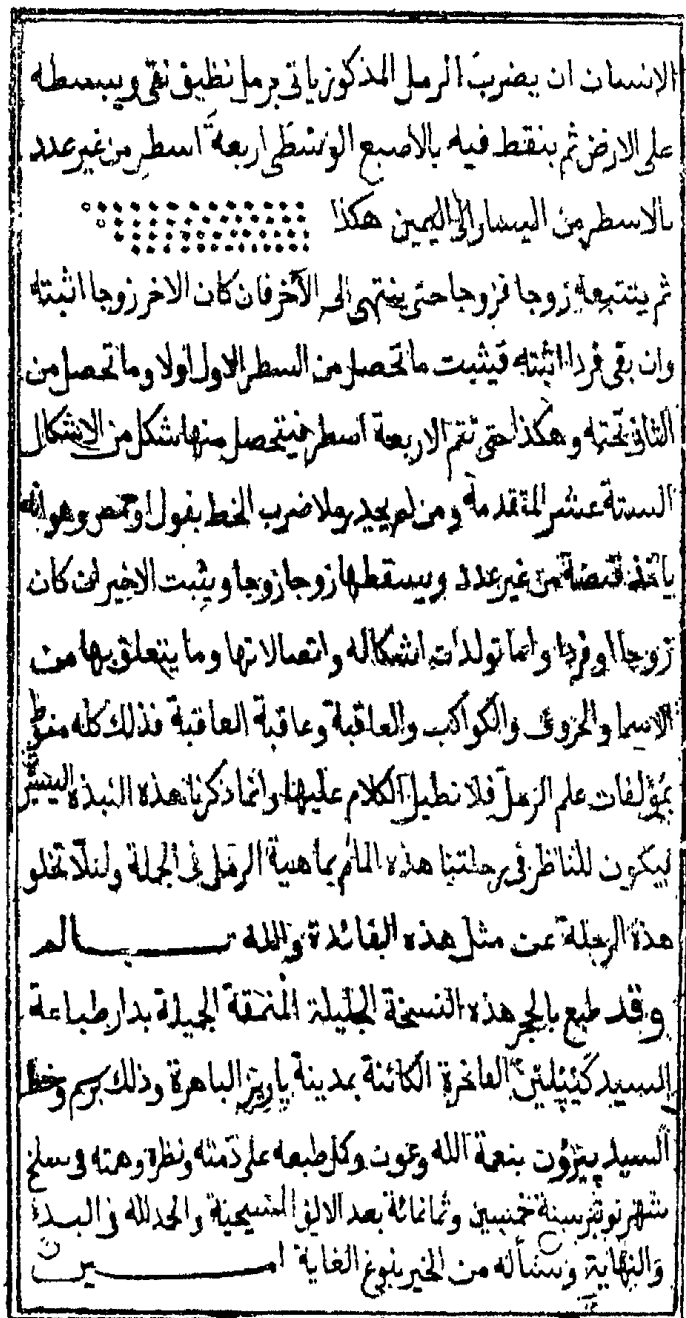 الانسان ان يضرب الرمل المذكور ياتى برمل نظيف نقى ويبسطه
على الارض ثم ينقط فيه بالاصبع الوسطى اربعة اسطر من غير عدد
بالاسطر من اليسار الى اليمين هكذا
ثم يتتبعه زوجا فزوجا حتى ينتهى الى الآخر فان كان الاخر زوجا اثبته
وان بقى فردا اثبته فيثبت ما تحصل من السطر الاول اولا وما تحصل من
الثانى تحته وهكذا حتى تتم الاربعة اسطر فيتحصل منها شكل من الاشكال
الستة عشر المتقدمة ومن لم يجد رملا ضرب الخط بفول او حمص وهو انه
ياخذ قبضة من غير عدد ويسقطها زوجا زوجا ويثبت الاخير ان كان
زوجا او فردا واما تولدات اشكاله واتصالاتها وما يتعلق بها من
الاسما والحروف والكواكب والعاقبة وعاقبة العاقبة فذلك كله منوط
بمؤلفات علم الرمل فلا نطيل الكلام عليها وانما ذكرنا هذه النبذه اليسيرة
ليكون للناظر فى رحلتنا هذه المام بماهية الرمل فى الجملة ولئلا تخلو
هذه الرحلة عن مثل هذه الفائدة والله
وقد طبع بالحجر هذه النسخة الجليلة المنمقة الجميلة بدار طباعة
السيد كنيپلين الفاخرة الكائنة بمدينة پاريز الباهرة وذلك برسم وخط
السيد پيرون بنعمة الله وعون وكل طبعه على ذمته ونظره وهمته فى سلخ
شهر نونبر سنة خمسين وثمانمائة بعد الالف المسيحية والحمد لله فى البدء
والنهاية ونسأله من الخير بلوغ الغاية امــين